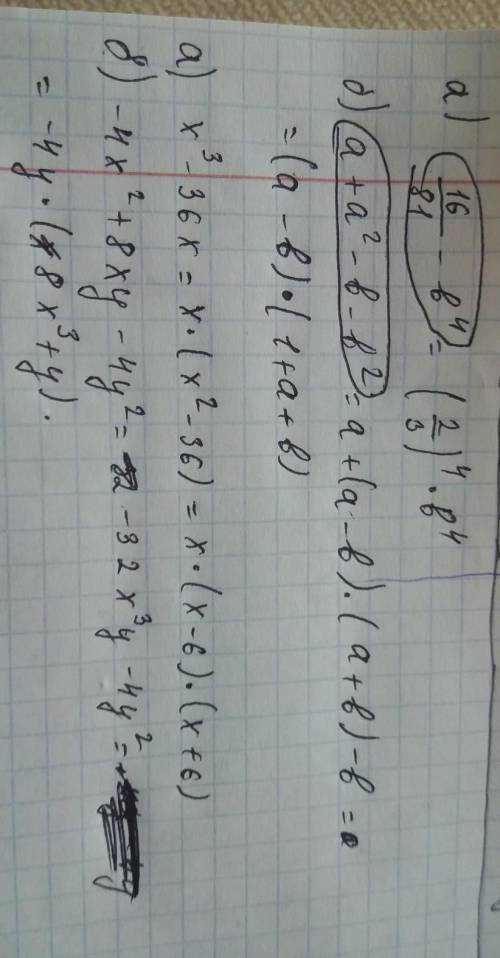 а) 16/81 - b⁴ = (2/3)⁴ · b⁴
б) a + a² - b - b² = a + (a - b) · (a + b) - b =
= (a - b) · (1 + a + b)
а) x³ - 36x = x · (x² - 36) = x · (x - 6) · (x + 6)
б) -4x² + 8xy - 4y² = -32x³y - 4y² =
= -4y · (8x³ + y).